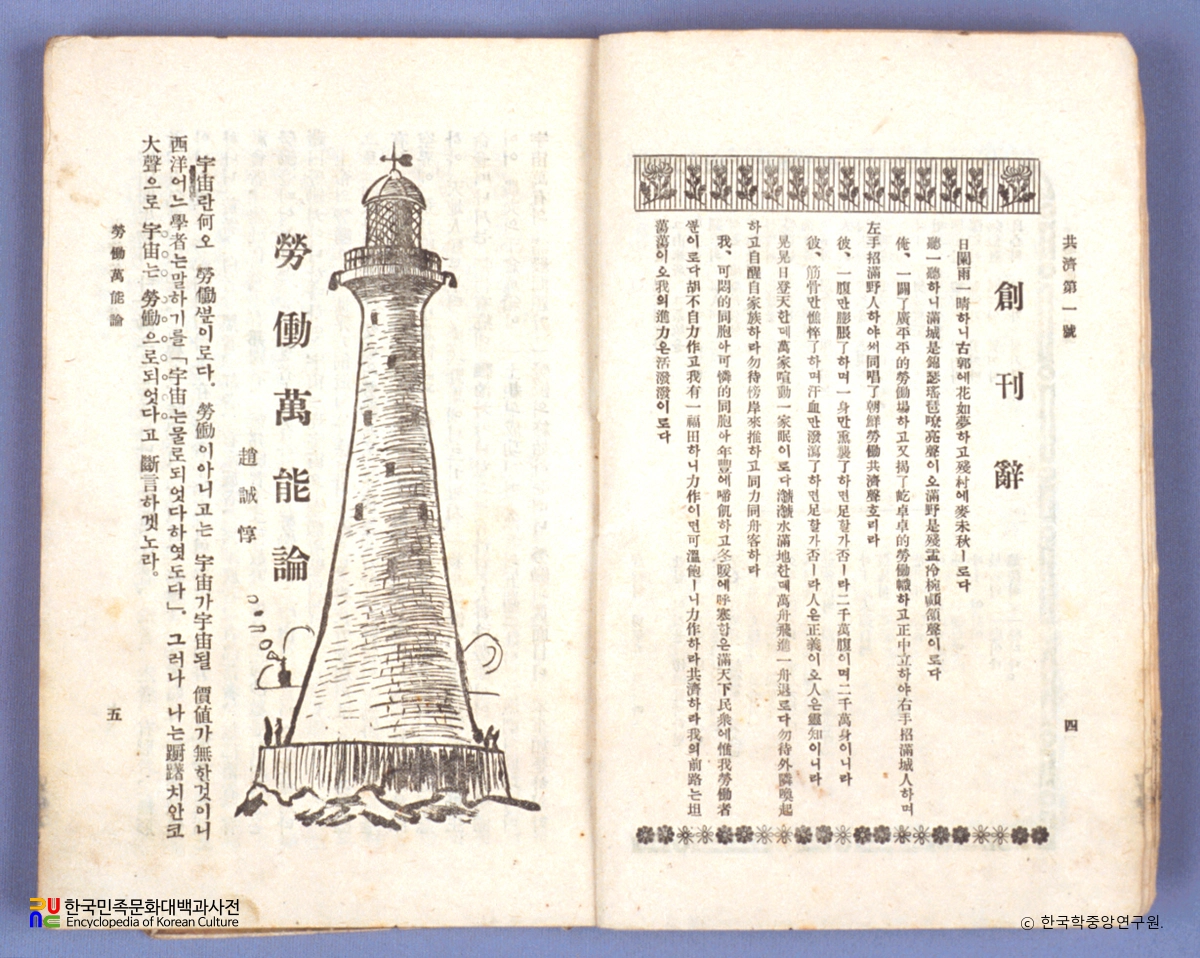 共濟第一號
創刊辭
日闌雨一晴하니古郭에花如夢하고殘村에麥未秋ㅣ로다
聽一聽하니滿城是錦瑟瑤琶嘹亮聲이오滿野是殘盂冷椀顑頷聲이로다
俺、一闢了廣平平的勞働場하고又揭了屹卓卓的勞働幟하고正中立하야右手招滿城人하며
左手招滿野人하야써同唱了朝鮮勞働共濟聲호리라
彼、一腹만膨脹了하며一身만熏襲了하면足할가否ㅣ라二千萬腹이며二千萬身이니라
彼、筋骨만憔悴了하며汗血만潑瀉了하면足할가否ㅣ라人은正義이오人은靈知이니라
晃晃日登天한데萬家喧動一家眠이로다瀲瀲水滿地한데萬舟飛進一舟退로다勿待外隣喚起
하고自醒自家族하라勿待傍岸來推하고同力同舟客하라
我、可悶的同胞아可憐的同胞아年豊에啼飢하고冬暖에呼寒함은滿天下民衆에惟我勞働者
뿐이로다胡不自力作고我有一福田하니力作이면可溫飽ㅣ니力作하라共濟하라我의前路는坦
蕩蕩이오我의進力은活潑潑이로다
四
勞働萬能論
趙誠惇
宇宙란何오 勞働뿐이로다. 勞働이아니고는 宇宙가宇宙될 價値가無한것이니
西洋어느學者는말하기를「宇宙는물로되엇다하엿도다」. 그러나 나는躊躇치안코
大聲으로 宇宙는 勞働으로되엇다고 斷言하겟노라.
勞働萬能論
五
한국민족문화대백과사전
Encyclopedia of Korean Culture
ⓒ 한국학중앙연구원.